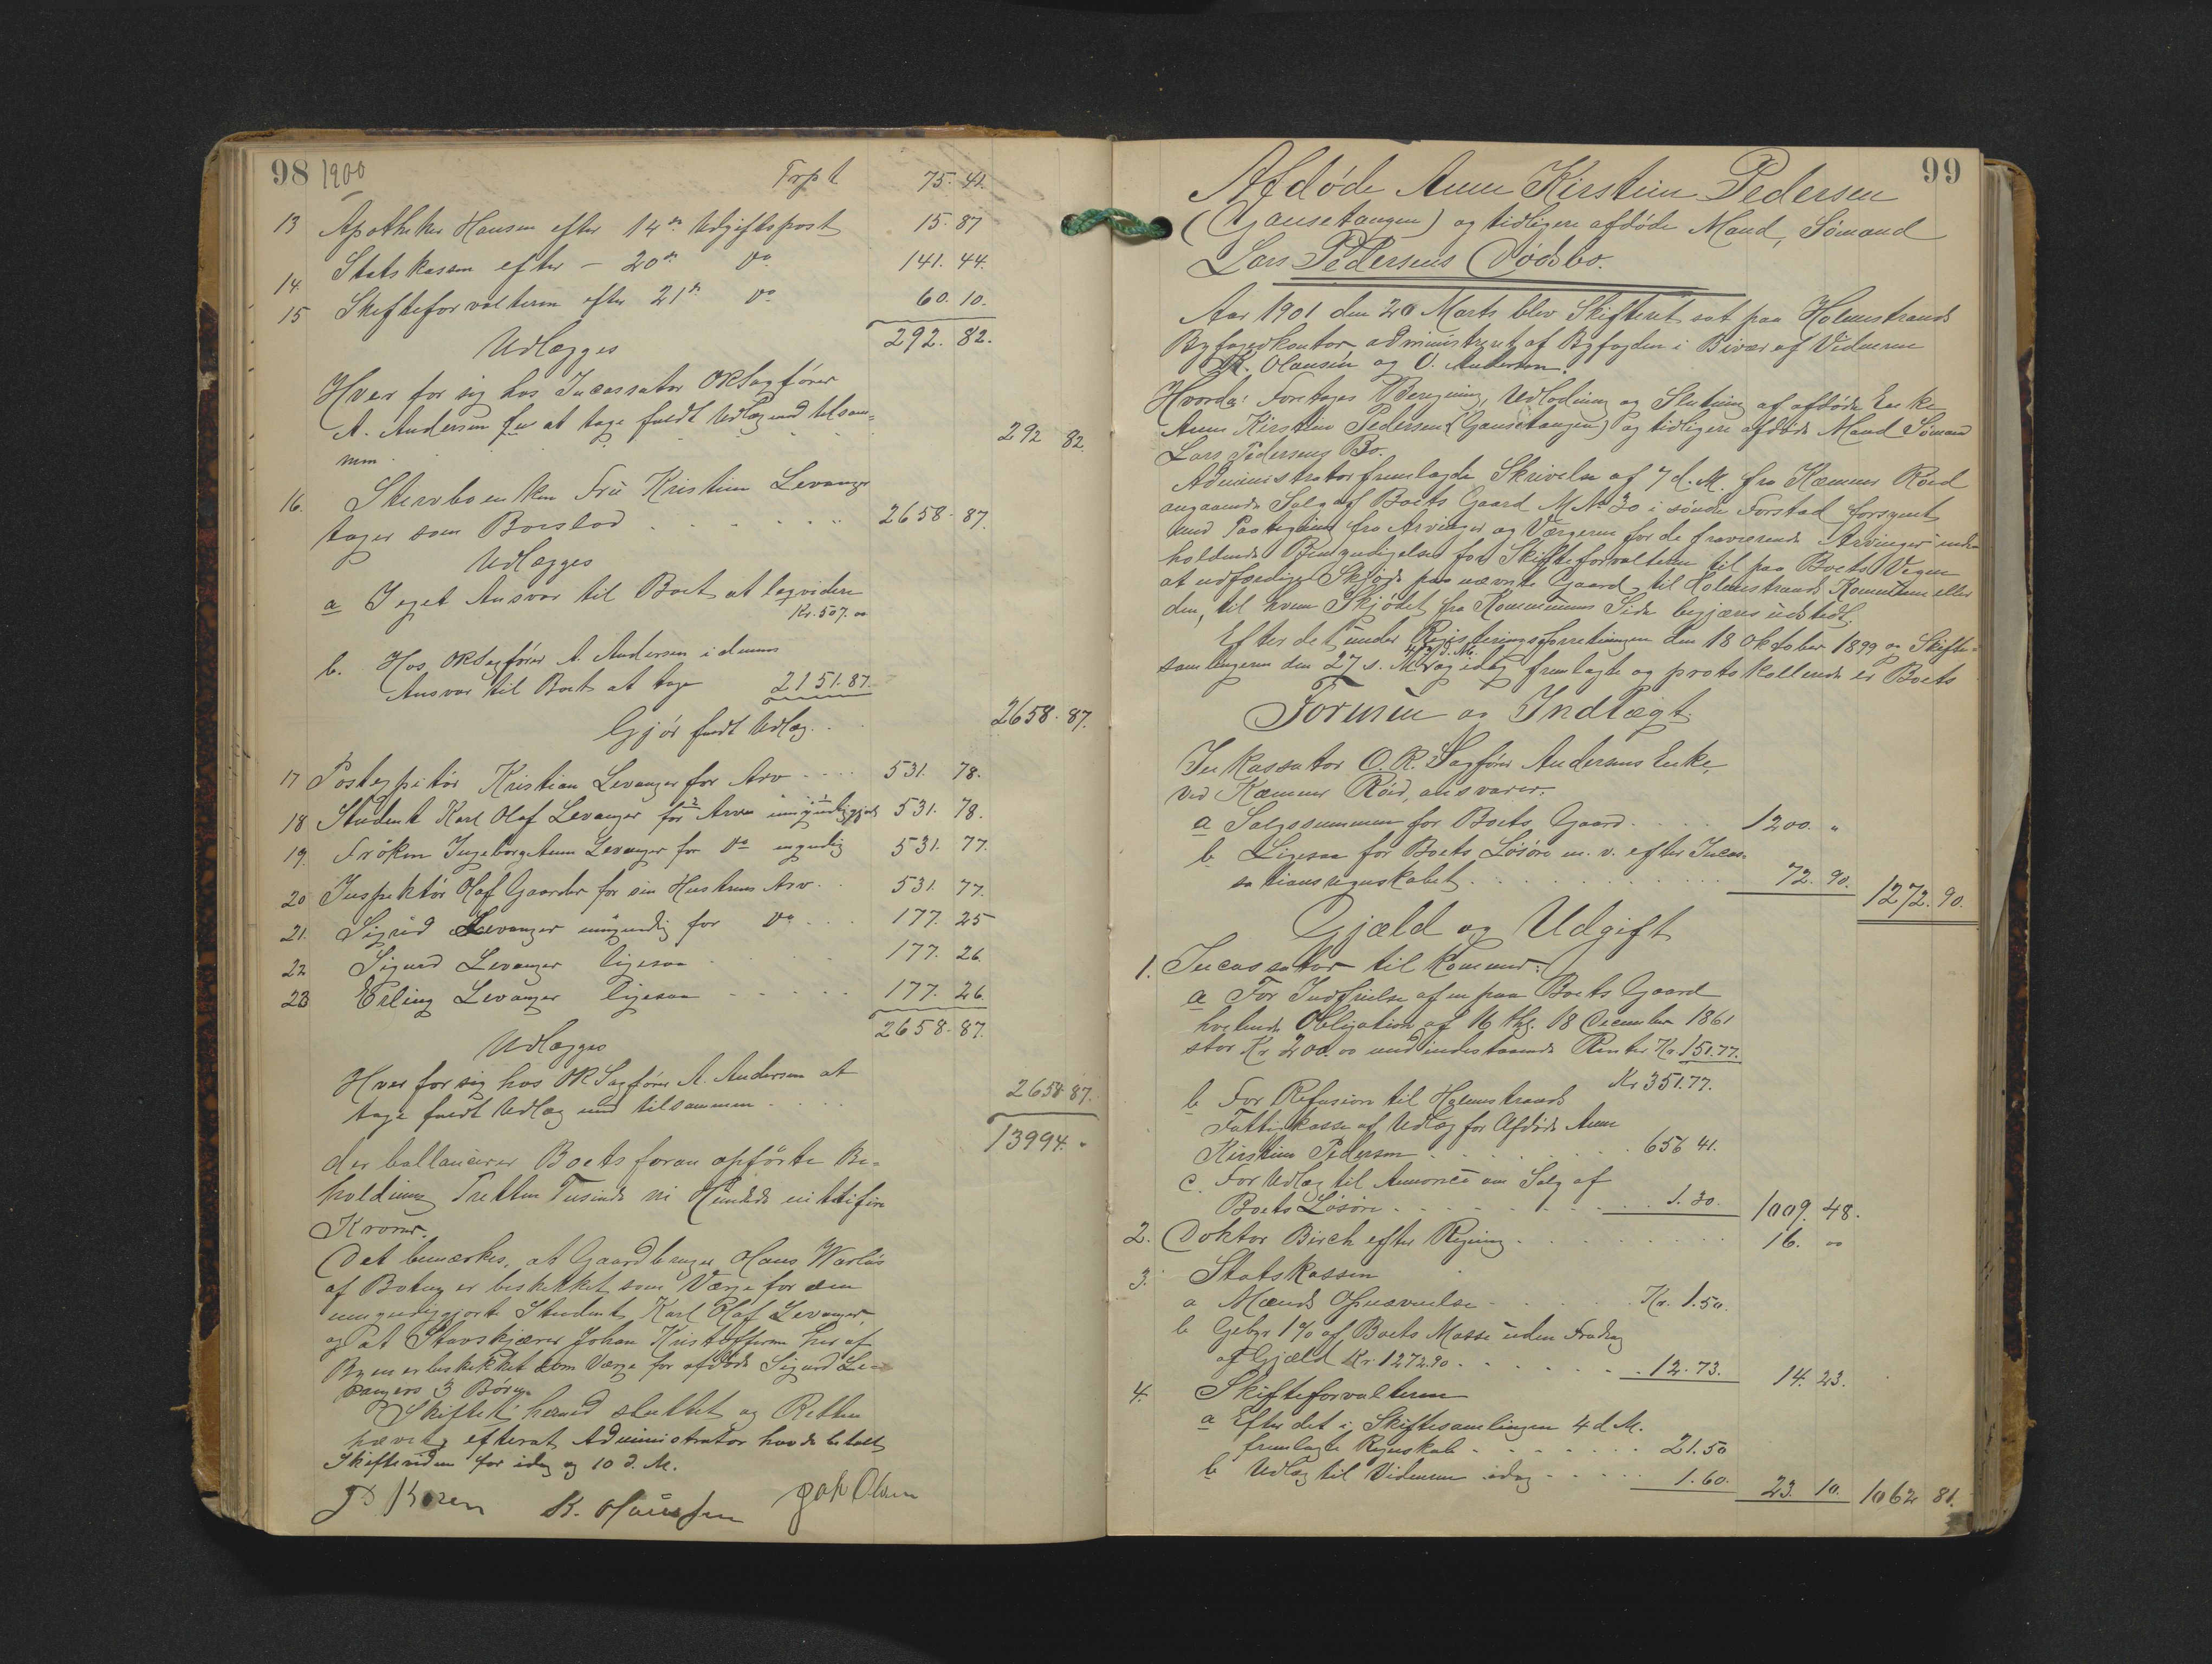 98 1900
Trpt 75. 41.
13 Apotheker Hansen efter 14de Udgiftspost 15. 87
14. Statskassen efter — 20de Do 141. 44.
15 Skifteforvalteren efter 21de Do 60. 10.
292. 82.
Udlægges
Hver for sig hos Incassator ORSagfører
A. Andersen at tage fuldt Udlæg med tilsam=
men 292 82.
16. Stervboenken Fru Kristine Levanger
tager som Boeslod 2658. 87.
Udlægges
a I eget Ansvar til Boet at liqvidere
Kr. 507.00
b. Hos ORSagfører A. Andersen i dennes
Ansvar til Boet at tage 2151.87.
Gjør fuldt Udlæg. 2658. 87.
17 Postexpeditør Kristian Levanger for Arv 531. 78.
18 Student Karl Olaf Levanger for Arv umyndiggjort 531. 78.
19. Frøken Ingeborg Anne Levanger for Do myndig 531. 77.
20 Inspektør Olaf Gaarder for sin Hustrus Arv 531. 77.
21. Sigrid Levanger umyndig for Do 177. 25
22 Sigurd Levanger ligesaa 177. 26
23 Erling Levanger ligesaa 177. 26.
2658. 87.
Udlægges
Hver for sig hos ORSagfører A. Andersen at
tage fuldt Udlæg med tilsammen 2658 87.
13994. "
der ballancerer Boets foran opførte Be=
holdning Tretten Tusinde ni Hundrede nittifire
Kroner.
Det bemærkes, at Gaardbruger Hans
af Botne er beskikket som Værge for den
umyndiggjorte Student Karl Olaf Levanger,
og at Stavskjærer Johan Kristoffersen her af
Byen er beskikket som Værge for afdøde Sigurd Le=
vangers 3 Børn.
Skiftet hermed sluttet og Retten
hævet, efterat Administrator havde betalt
Skiftevidnerne for idag og 10 d. M.
Koren K. Olaussen Jak Olsen
99
Afdøde Anne Kirstine Pedersen
(Gausetangen) og tidligere afdøde Mand, Sømand
Lars Pedersens Dødsbo.
Aar 1901 den 20 Marts blev Skifteret sat paa Holmestrands
Byfogedkontor administreret af Byfogden i Bivær af Vidnerne
K. Olausen og O. Andersen.
Hvorda: Foretages Beregning, Udlodning og Slutning af afdøde Enke
Anne Kirstine Pedersen (Gausetangen) og tidligere afdøde Mand Sømand
Lars Pedersens Bo.
Administrator fremlagde Skrivelse af 7 d. M. fra Kæmner Röed
angaaende Salg af Boets Gaard M No 30 i søndre Forstad forsynet
med Paategning fra Arvinger og Værgerne for de fraværende Arvinger inde=
holdende Bemyndigelse for Skifteforvalteren til paa Boets Vegne
at udfærdige Skjøde paa nævnte Gaard til Holmestrands Kommune eller
den, til hvem Skjødet fra Kommunens Side begjæres udstedt.
Efter det under Registreringsforretningen den 18 Oktober 1899 og Skifte=
samlingerne den 27 s. M. 4 d. M. og idag fremlagte og protokollerede er Boets
Formue og Indtægt.
Inkassator O. R. Sagfører Andersens Enke,
ved Kæmner Röed, ansvarer:
a Salgssummen for Boets Gaard 1200. "
b Ligesaa for Boets Løsøre m. v. efter Incas=
sationsregnskabet 72. 90. 1272. 90.
Gjæld og Udgift
1. Incassator til Kæmner:
a For Indfrielse af en paa Boets Gaard
hvilende Obligation af 16 thgl. 18 December 1861
stor Kr 200.00 med indestaaende Renter Kr. 151.77.
Kr 351.77.
b For Refusion til Holmestrands
Fattigkasse af Udlæg for Afdøde Anne
Kirstine Pedersen 656 41.
c. For Udlæg til Annonce om Salg af
Boets Løsøre 1.30. 1009. 48.
2. Doktor Birch efter Regning 16. 00
3. Statskassen
a Mænds Opnævnelse Kr. 1.50.
b Gebyr 1% af Boets Masse uden Fradrag
af Gjæld Kr. 1272.90 12.73. 14. 23.
4. Skifteforvalteren
a Efter det i Skiftesamlingen 4 d M.
fremlagte Regnskab 21.50
b Udlæg til Vidnerne idag 1.60. 23. 10. 1062 81.